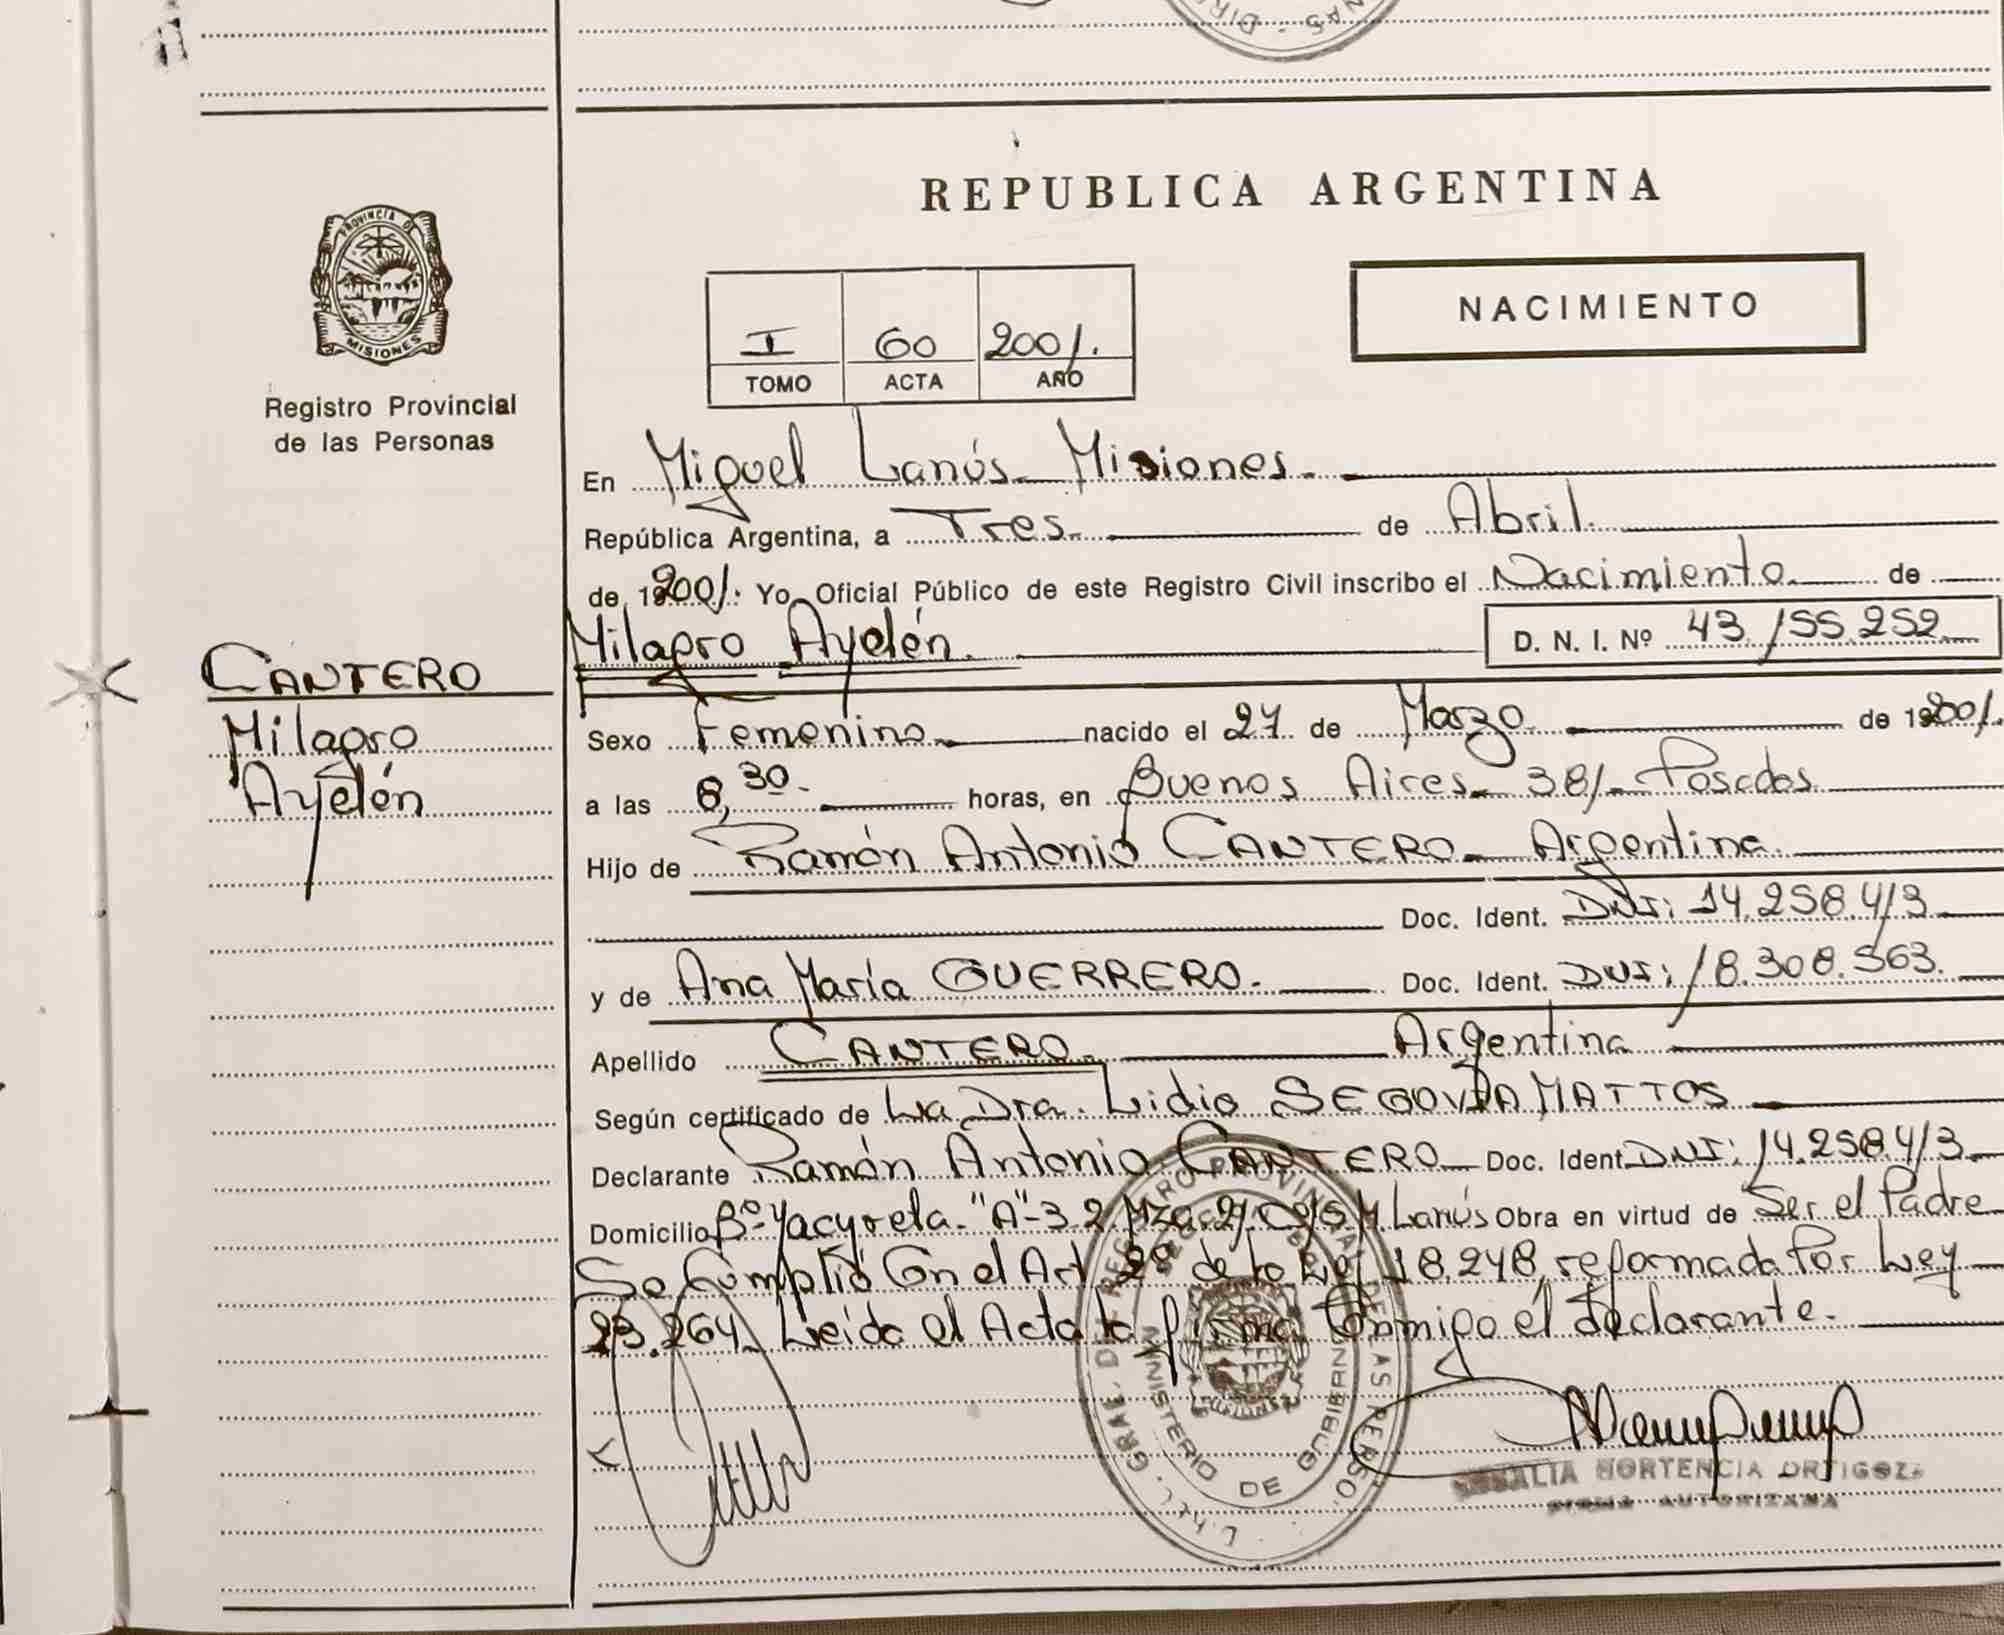 REPUBLICA ARGENTINA
PROVINCIA DE
MISIONES
Registro Provincial
de las Personas
NACIMIENTO
I 60 2001.
TOMO ACTA AÑO
En Miguel Lanús Misiones.
República Argentina, a Tres. de Abril.
de 2001. Yo Oficial Público de este Registro Civil inscribo el Nacimiento de
Milagro Ayelén. D. N. I. Nº 43.155.252
CANTERO
Milagro
Ayelén
Sexo Femenino nacido el 27 de Marzo de 2001.
a las 8,30. horas, en Buenos Aires 381 Posadas
Hijo de Ramón Antonio CANTERO Argentina.
Doc. Ident. DNI: 14.258.413
y de Ana María GUERRERO. Doc. Ident. DNI: 18.308.563.
Apellido CANTERO. Argentina
Según certificado de La Dra. Lidia SEGOVIA MATTOS
Declarante Ramón Antonio CANTERO Doc. Ident. DNI: 14.258.413
Domicilio Bº Yacyreta "A"-3.2 Mza. M. Lanús Obra en virtud de Ser el Padre
Se Cumplió Con el Art. 2º de la Ley 18.248, reformada Por Ley
23.264. Leida el Acta la firma Conmigo el declarante.
GRAL. DE REGISTRO PROVINCIAL DE LAS PERSO
MINISTERIO DE GOBIERN
HORTENCIA ORTIGOZA
FIRMA AUTORIZADA